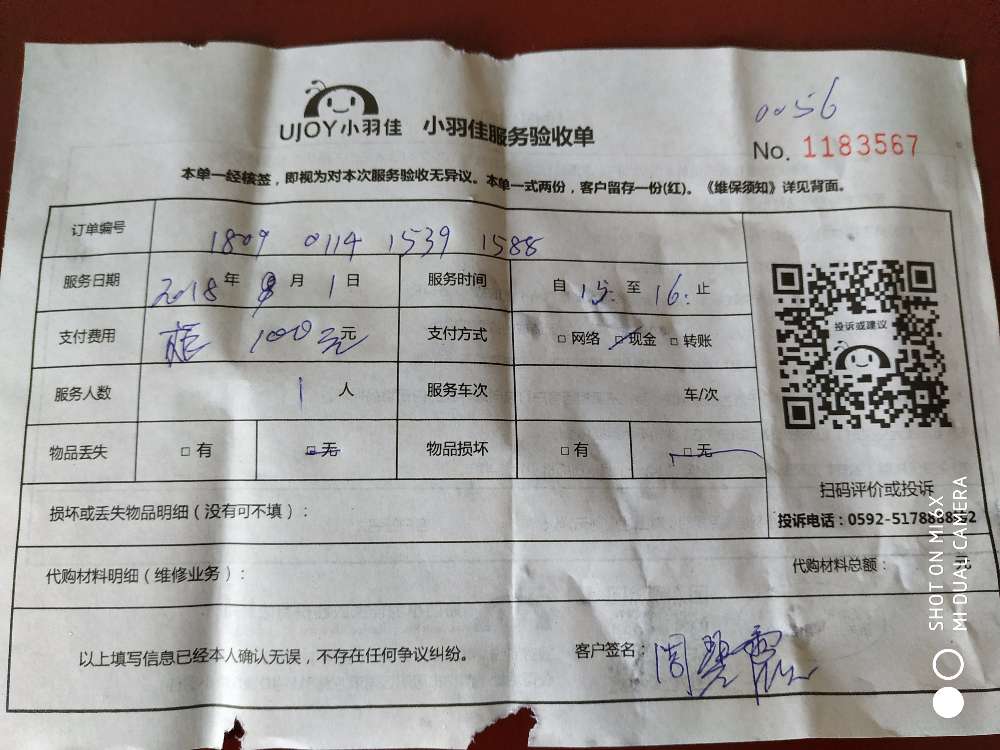 0056
UJOY小羽佳 小羽佳服务验收单
No. 1183567
本单一经核签，即视为对本次服务验收无异议。本单一式两份，客户留存一份(红)。《维保须知》详见背面。
订单编号 1809 0114 1539 1588
服务日期 2018 年 9 月 1 日 服务时间 自 15: 至 16: 止
支付费用 100 元 支付方式 □ 网络 □ 现金 □ 转账
服务人数 1 人 服务车次 车/次
物品丢失 □ 有 □ 无 物品损坏 □ 有 □ 无
投诉或建议
扫码评价或投诉
损坏或丢失物品明细（没有可不填）：
投诉电话：0592-5178888
代购材料明细（维修业务）： 代购材料总额： 元
以上填写信息已经本人确认无误，不存在任何争议纠纷。 客户签名：周碧霞
SHOT ON MI 6X
MI DUAL CAMERA